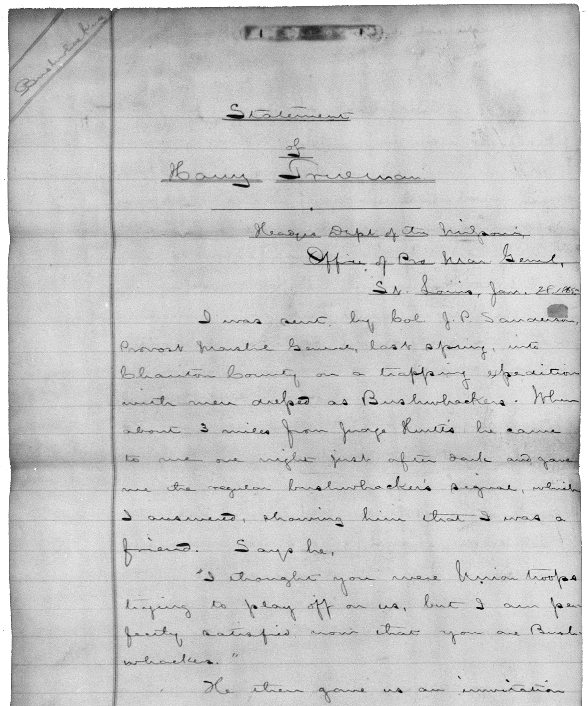 Bushwhackers
Statement
of
Harry Truman
Headqrs Dept of the Missouri,
Office of Pro Mar Genl,
St. Louis, Jan. 28, 1865
I was sent by Col J. P. Sanderson,
Provost Marshl General, last spring, into
Chariton County on a trapping expedition
with men dressed as Bushwhackers. When
about 3 miles from Judge he came
to me one night just after dark and gave
me the regular bushwhacker's signal, which
I answered, showing him that I was a
friend. Says he,
"I thought you were Union troops
trying to play off on us, but I am per
fectly satisfied now that you are Bush
whackers."
He then gave us an invitation